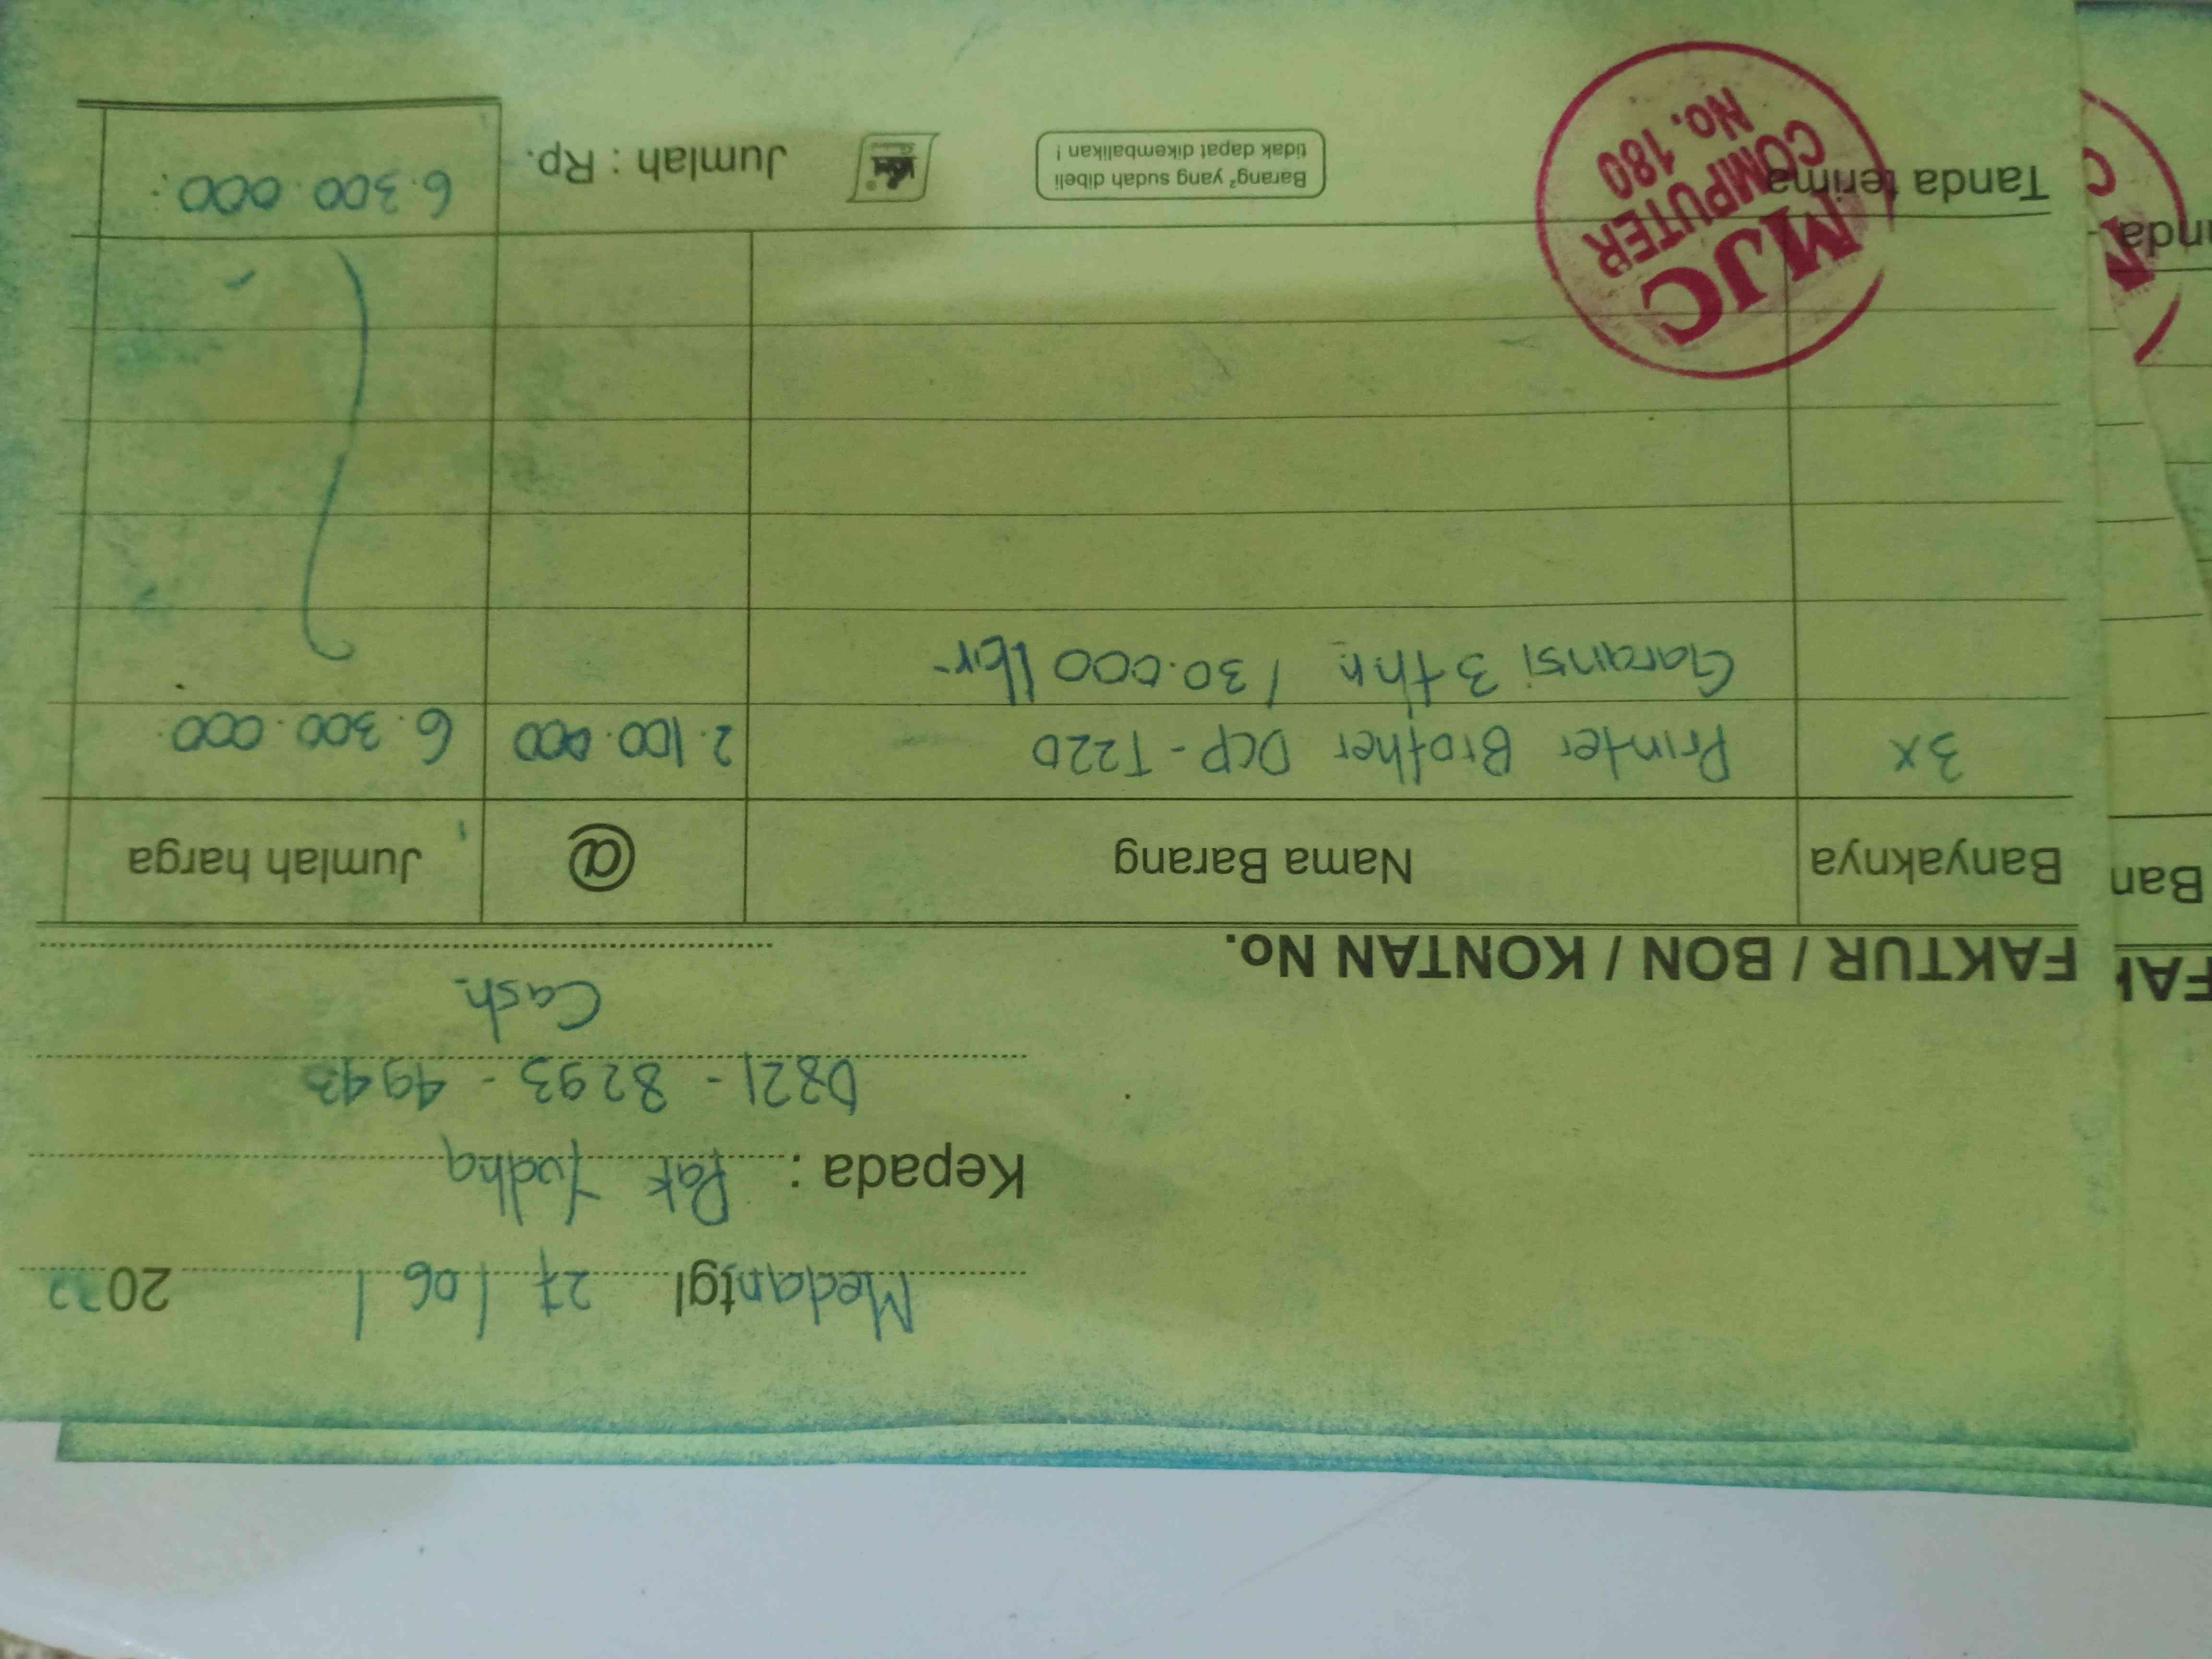 Medan tgl 27 / 06 / 20
Kepada : Pak Yudha
0821 - 8293 - 4943
Cash
FAKTUR / BON / KONTAN No.
Banyaknya Nama Barang @ Jumlah harga
3x Printer Brother DCP - T220 2.100.000 6.300.000
Garansi 3 thn / 30.000 lbr
Tanda terima
Barang² yang sudah dibeli
tidak dapat dikembalikan !
Jumlah : Rp. 6.300.000
MJC
COMPUTER
No. 180
FA
Ban